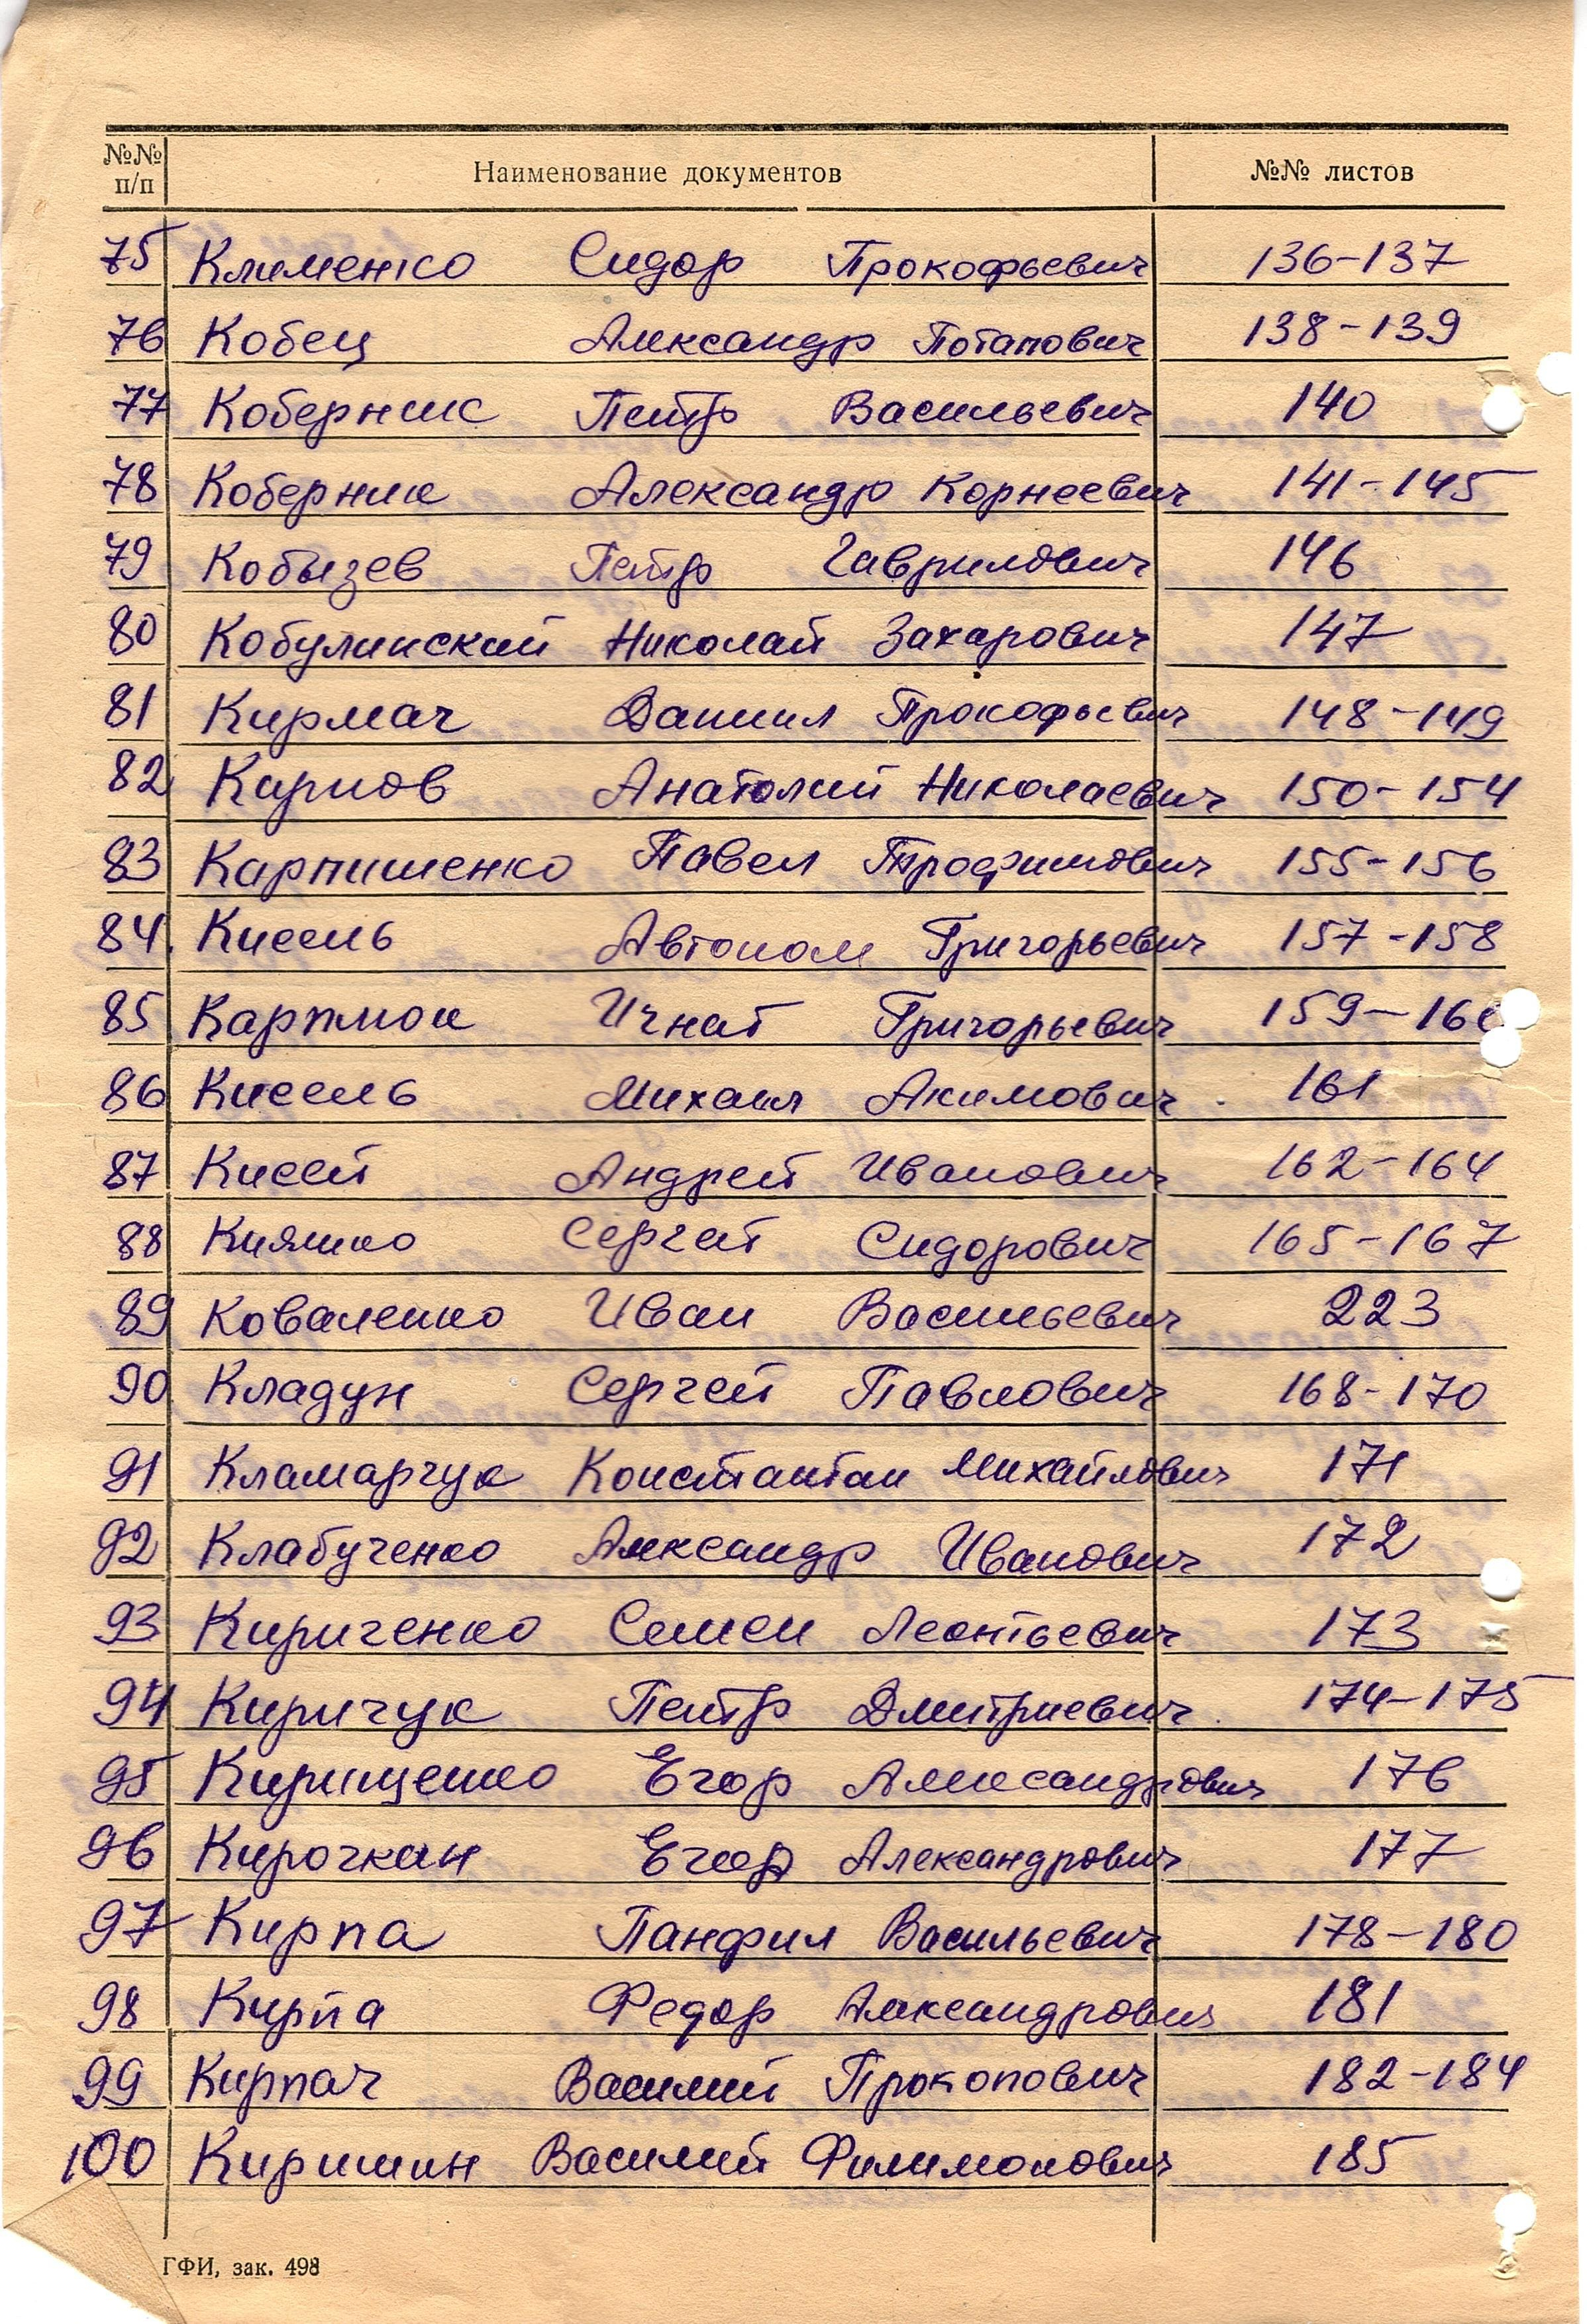 №№ п/п Наименование документов №№ листов
75 Клименко Сидор Прокофьевич 136-137
76 Кобец Александр Потапович 138-139
77 Коберник Петр Васильевич 140
78 Коберник Александр Корнеевич 141-145
79 Кобызев Петр Гаврилович 146
80 Кобулинский Николай Захарович 147
81 Кирмач Даниил Прокофьевич 148-149
82 Карпов Анатолий Николаевич 150-154
83 Карпишенко Павел Трофимович 155-156
84. Кисель Автоном Григорьевич 157-158
85 Игнат Григорьевич 159-160
86 Кисель Михаил Акимович 161
87 Кисей Андрей Иванович 162-164
88 Кияшко Сергей Сидорович 165-167
89 Коваленко Иван Васильевич 223
90 Кладун Сергей Павлович 168-170
91 Кламарчук Константин Михайлович 171
92 Клабученко Александр Иванович 172
93 Кириченко Семен Леонтьевич 173
94 Киричук Петр Дмитриевич 174-175
95 Кирищенко Егор Александрович 176
96 Кирочкин Егор Александрович 177
97 Кирпа Панфил Васильевич 178-180
98 Кирпа Федор Александрович 181
99 Кирпач Василий Прокопович 182-184
100 Киришин Василий Филимонович 185
ГФИ, зак. 498